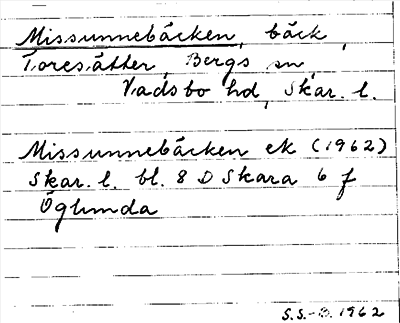 Missunnebäcken, bäck,
Toresätter, Bergs sn,
Vadsbo hd, Skar. l.
Missunnebäcken ek (1962)
Skar. l. bl. 8 D Skara 6 f
Öglunda
S.S.-B. 1962